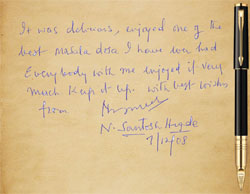 It was delicious, enjoyed one of the
best Masala dosa I have ever had
Everybody with me enjoyed it very
much Keep it up. with best wishes
from
N. Santosh Hegde
7/12/08